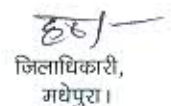 ह०/-
जिलाधिकारी,
मधेपुरा।